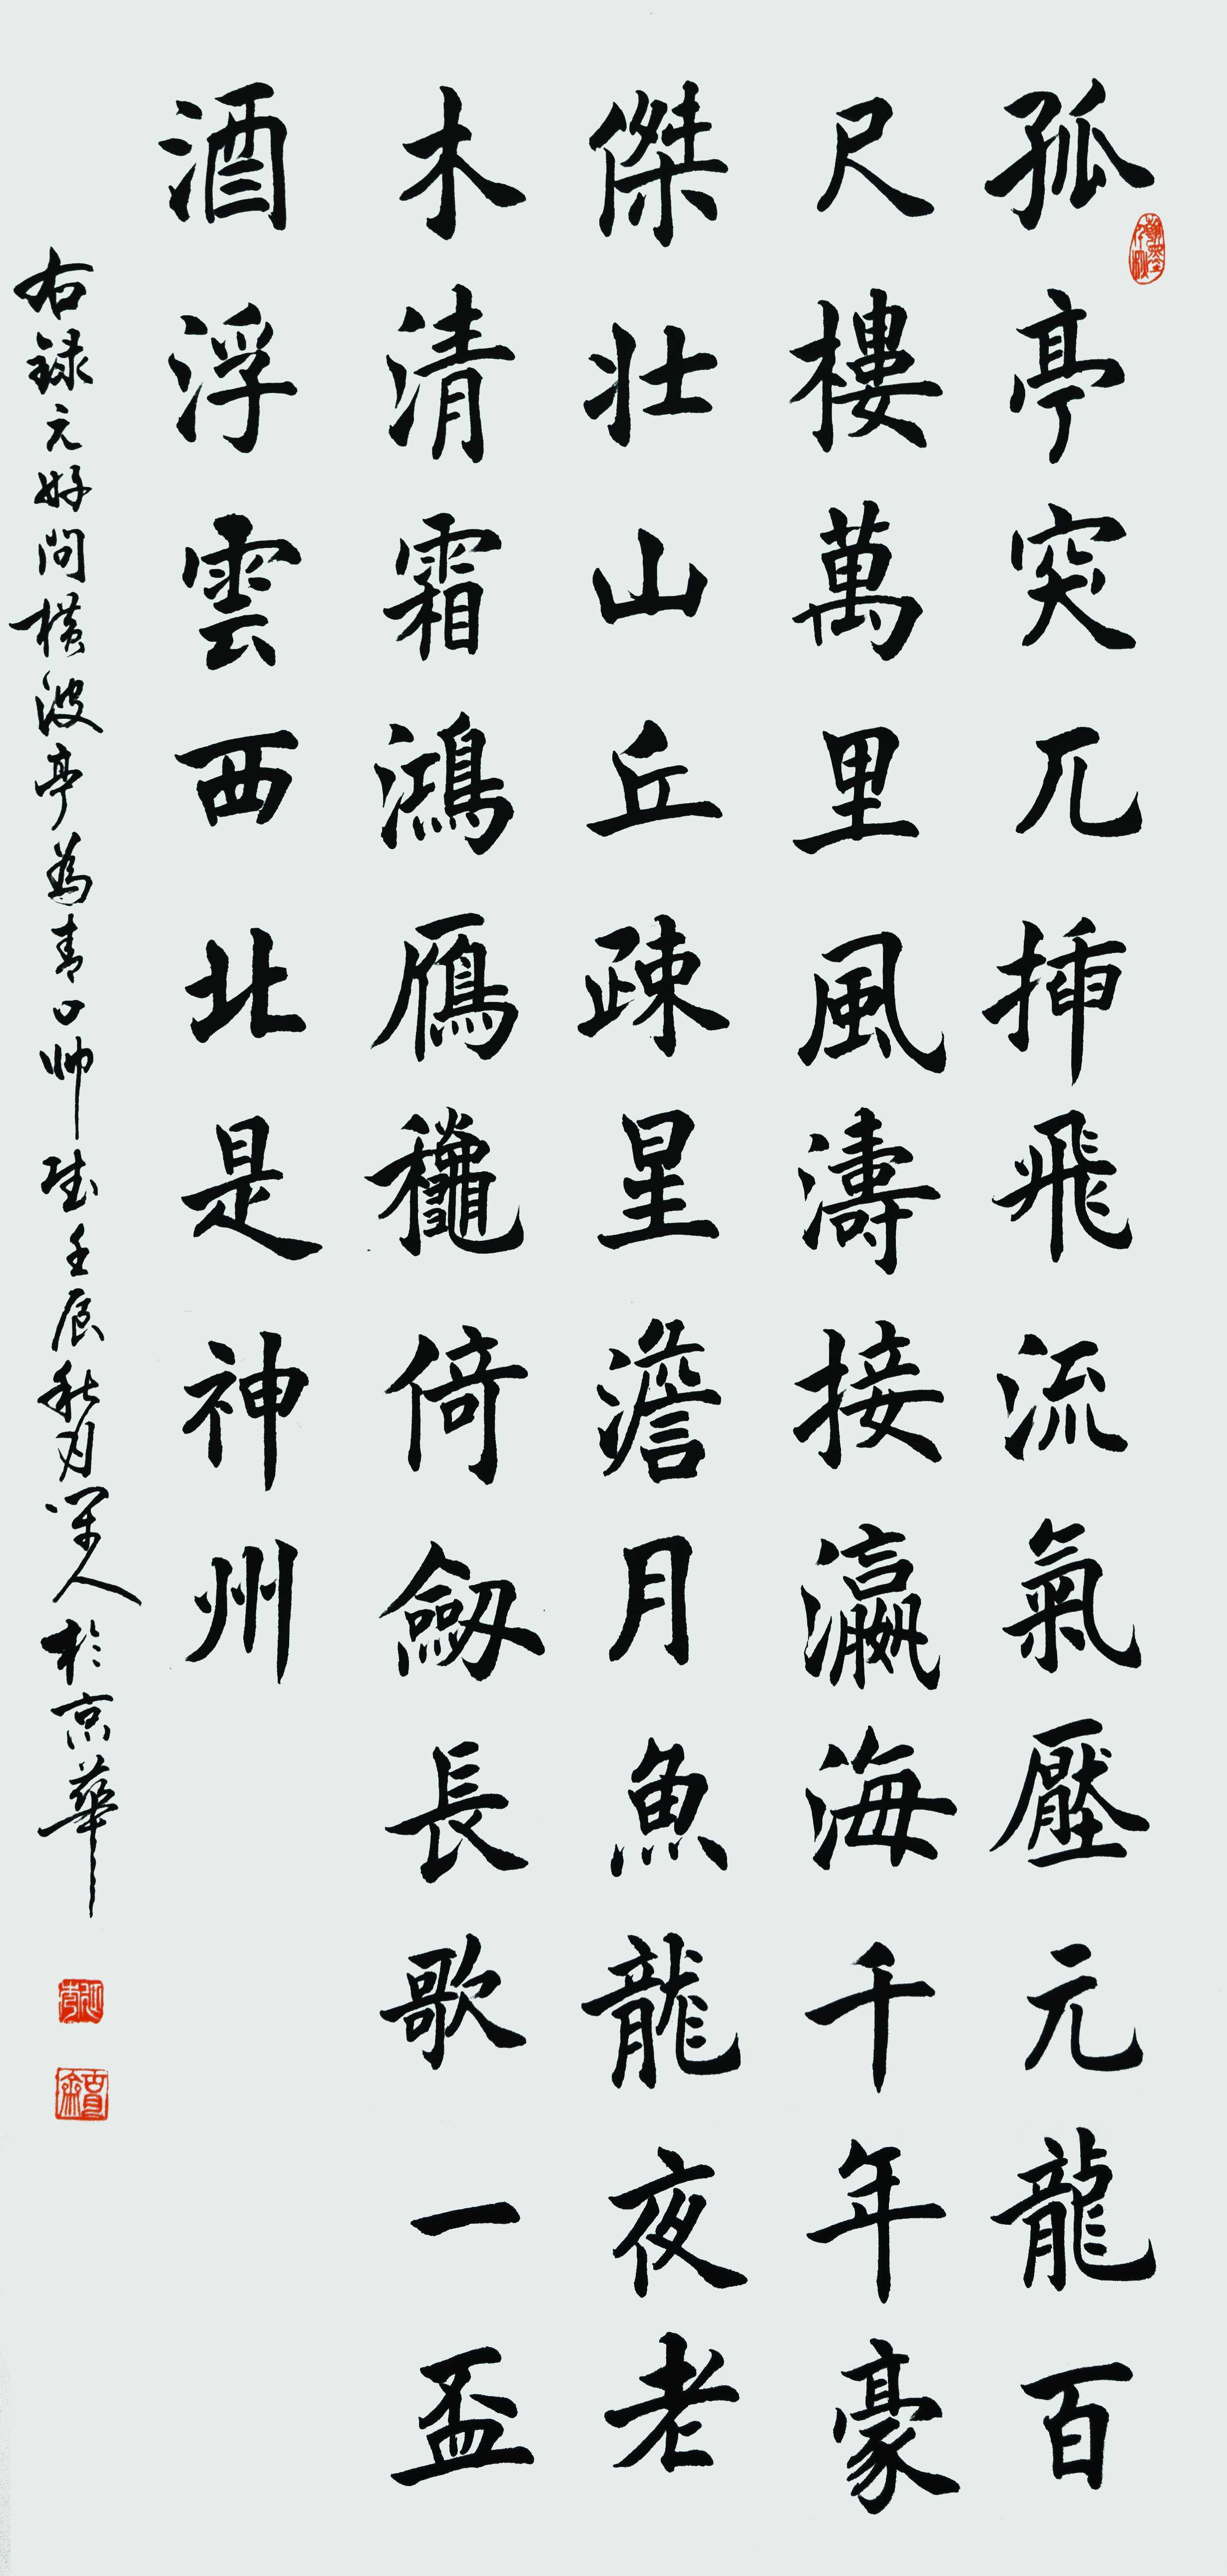 孤亭突兀挿飛流氣壓元龍百
尺樓萬里風濤接瀛海千年豪
傑壯山丘疎星澹月魚龍夜老
木清霜鴻鴈龝倚劒長歌一盃
酒浮雲西北是神州
右録元好問橫波亭為青口帥賦壬辰秋月人於京華
翰墨千秋